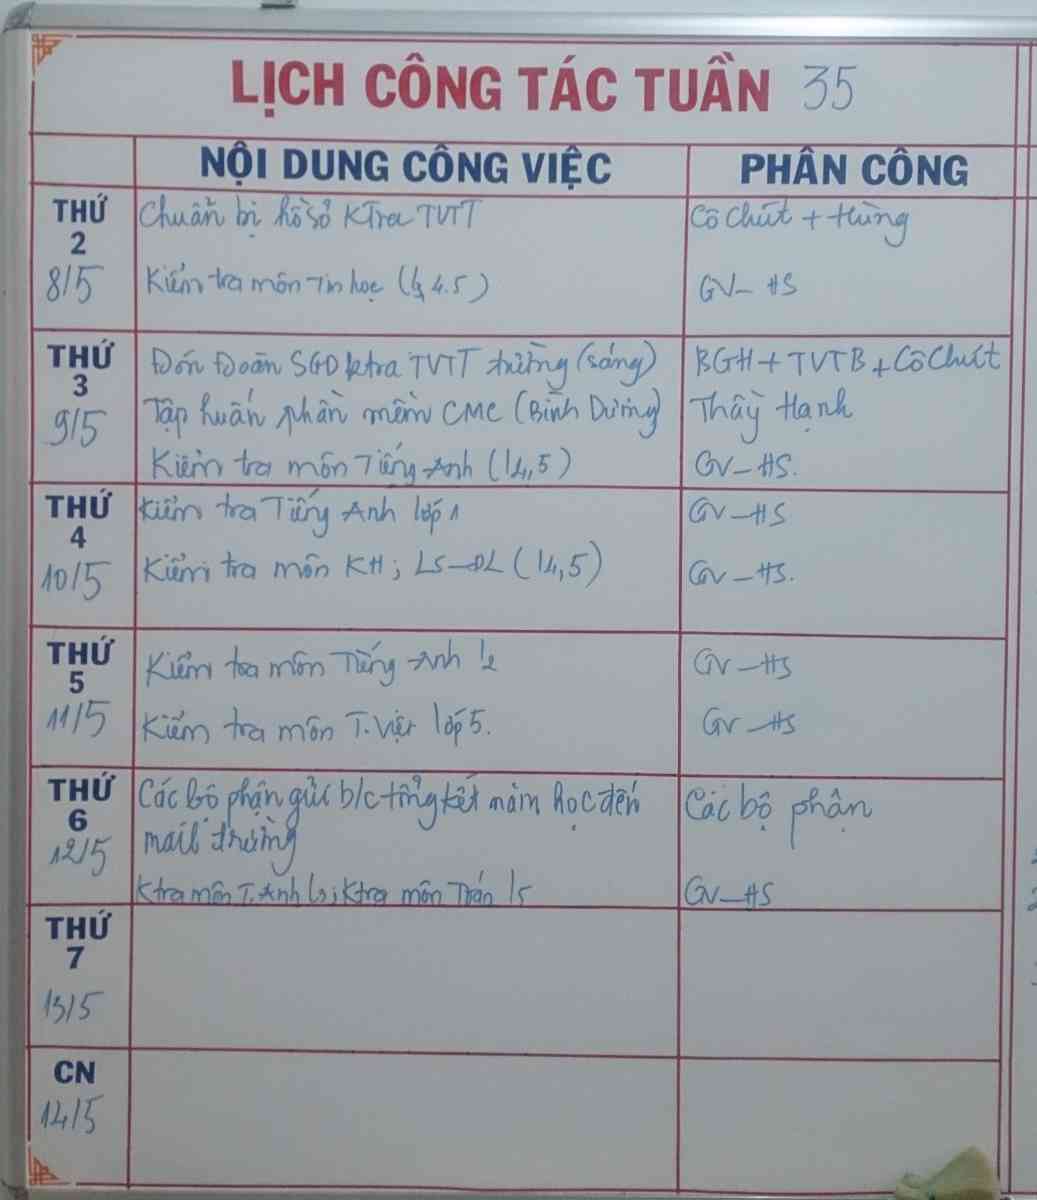 LỊCH CÔNG TÁC TUẦN 35
NỘI DUNG CÔNG VIỆC PHÂN CÔNG
THỨ 2 8/5
Chuẩn bị hồ sơ KTra TVTT Cô Chút + Hùng
Kiểm tra môn Tin học ( 4.5) GV - HS
THỨ 3 9/5
Đón Đoàn SGD ktra TVTT trường (sáng) BGH + TVTB + Cô Chút
Tập huấn phần mềm CMC (Bình Dương) Thầy Hạnh
Kiểm tra môn Tiếng Anh (l4,5) GV - HS.
THỨ 4 10/5
Kiểm tra Tiếng Anh lớp 1 GV - HS
Kiểm tra môn KH; LS - ĐL (l4,5) GV - HS.
THỨ 5 11/5
Kiểm tra môn Tiếng Anh l2 GV - HS
Kiểm tra môn T. Việt lớp 5. GV - HS
THỨ 6 12/5
Các bộ phận gửi b/c tổng kết năm học đến Các bộ phận
mail trường
Ktra môn T. Anh l3; Ktra môn Toán l5 GV - HS
THỨ 7 13/5
CN 14/5